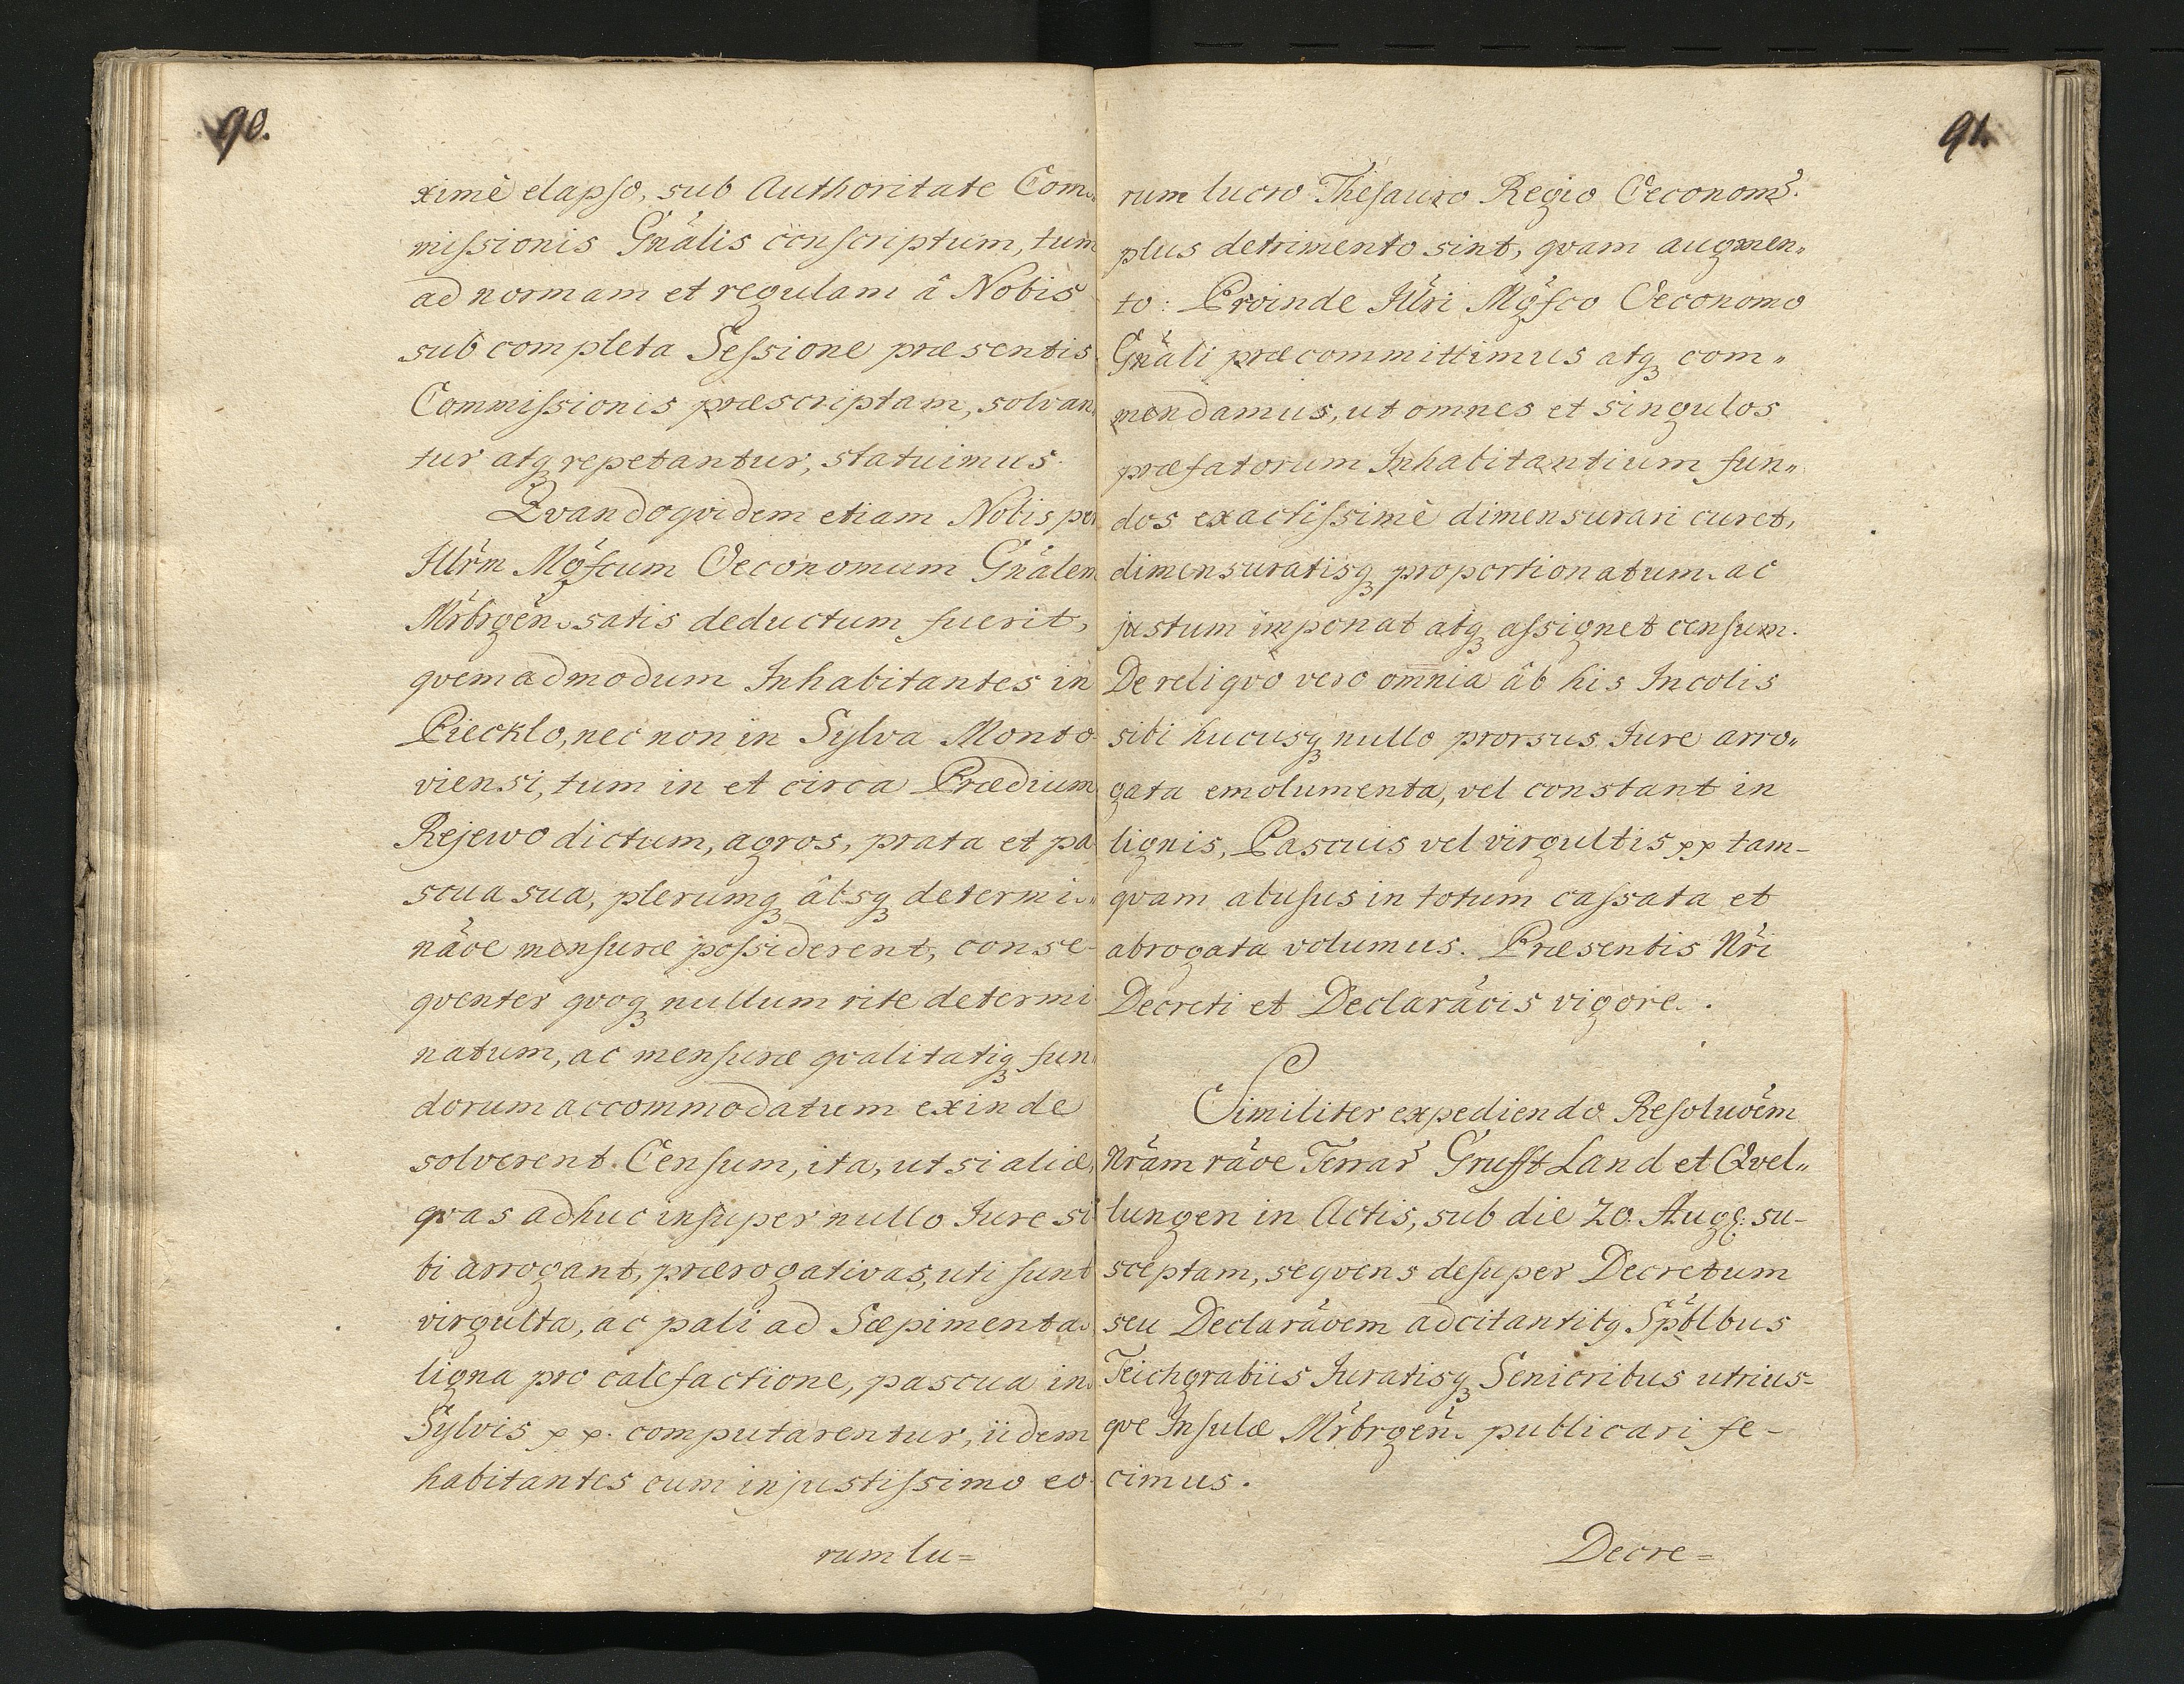 90.
ximè elapso, sub Authoritate Com„
missionis Gnâlis conscriptum, tum
ad normam et regulam â Nobis
sub completa Sessione præsentis
Commissionis præscriptam, solvan„
tur atq₃ repetantur, statuimus.
Qvandoqvidem etiam Nobis per
Illrm Mgfcum Oeconomum Gnâlem
Mrbrgen. satis deductum fuerit,
qvemadmodum Inhabitantes in
Piecklo, nec non in Sylva Monto-
viensi, tum in et circa Prædium
Rejewo dictum, agros, prata et pa
scua sua, plerumq₃ âbsq₃ determi„
nâõe mensuræ possiderent, conse-
qventer qvoq₃ nullum rite determi
natum, ac mensuræ qvalitatiq₃ fun„
dorum accommodatum exinde
solverent Censum, ita, ut si aliæ,
qvas adhuc insuper nullo Jure si
bi arrogant, prærogativas, uti sunt
virgulta, ac pali ad Sæpimenta
ligna pro calefactione, pascua in
Sylvis pp. computarentur, iidem
habitantes cum injustissimo eo-
rum lu=
91.
rum lucro Thesauro Regio Oeconom:
plus detrimento sint, qvam augmen„
to: Proinde Illri Mgfco Oeconomo
Gnâli præcommittimus atq₃ com„
mendamus, ut omnes et singulos
præfatorum Inhabitantium fun„
dos exactissimè dimensurari curet,
dimensuratisq₃ proportionatum ac
justum imponat atq₃ assignet censum.
De reliqvo vero omnia âb his Incolis
sibi hucusq₃ nullo prorsus Jure arro„
gata emolumenta, vel constant in
lignis, Pascuis vel virgultis pp tam-
qvam abusus in totum cassata et
abrogata volumus. Præsentis Nri
Decreti et Declarâõis vigore.
Similiter expediendo Resoluõem
Nrãm râõe Terrar Grufft Land et Qvel„
lungen in Actis, sub die 20. Aug: su-
sceptam, seqvens desuper Decretum
seu Declarâõem adcitantibq Spblbus
Teichgrabiis Juratisq₃ Senioribus utrius-
qve Insulæ Mrbrgen. publicari fe-
cimus.
Decre=